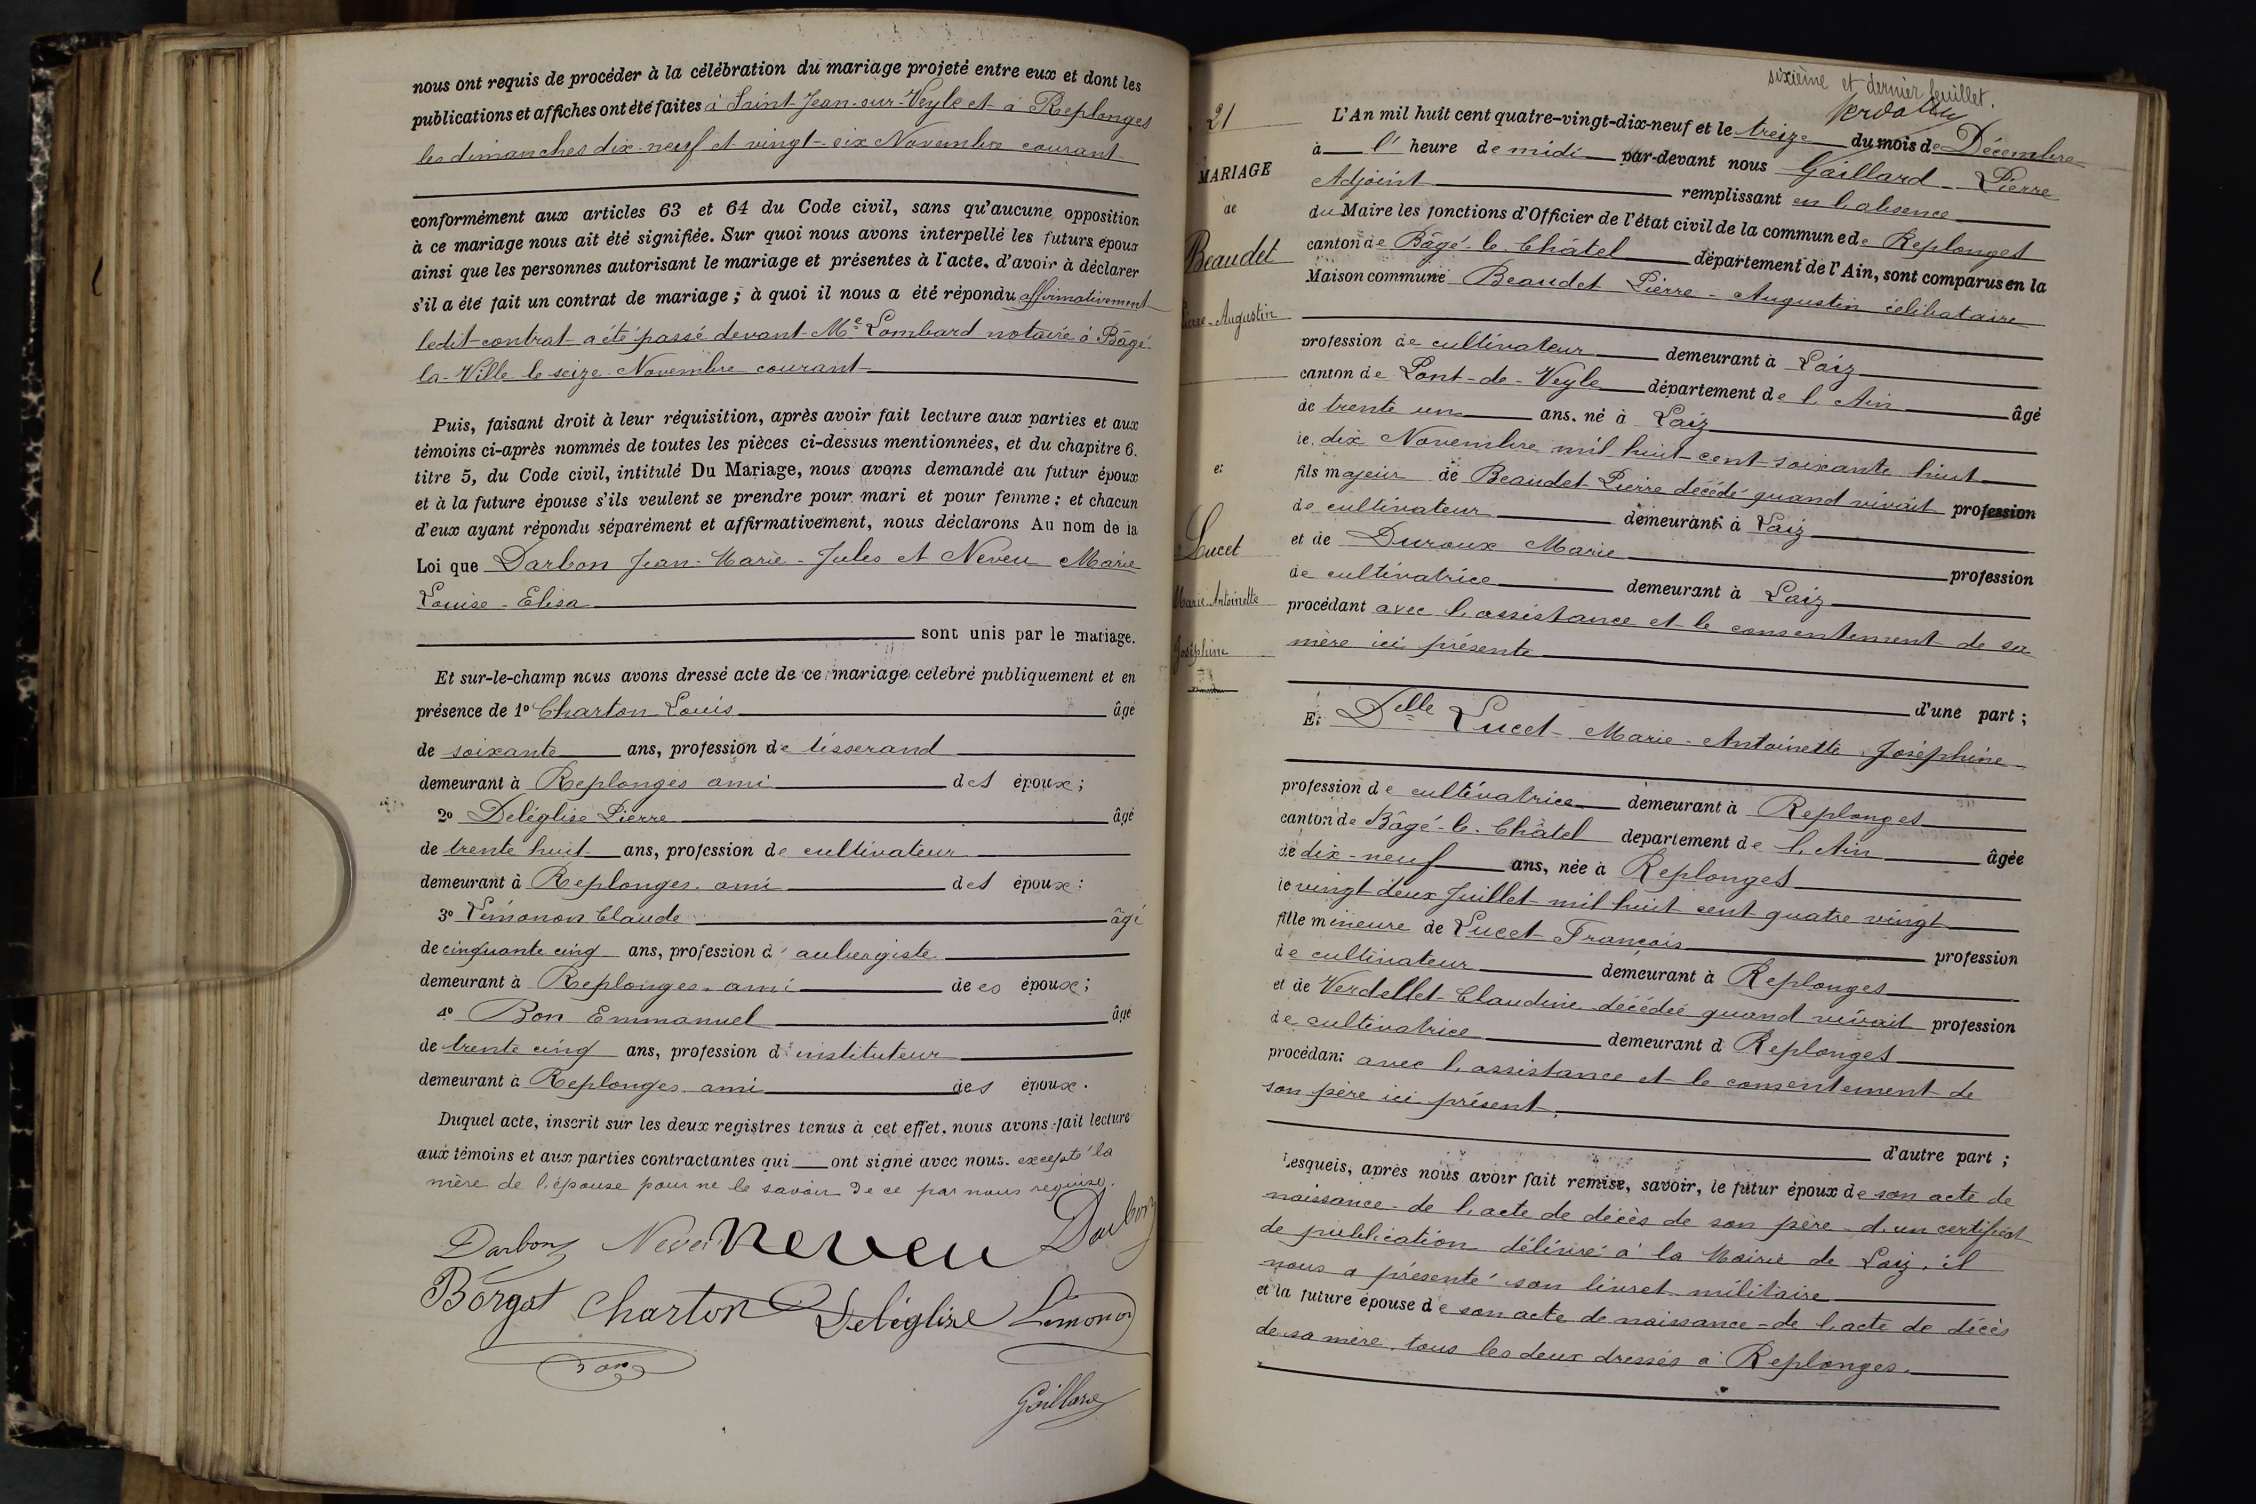 nous ont requis de procéder à la célébration du mariage projeté entre eux et dont les
publications et affiches ont été faites à Saint-Jean-sur-Veyle et à Replonges
les dimanches dix-neuf et vingt-six Novembre courant
conformément aux articles 63 et 64 du Code civil, sans qu'aucune opposition
à ce mariage nous ait été signifiée. Sur quoi nous avons interpellé les futurs époux
ainsi que les personnes autorisant le mariage et présentes à l'acte, d'avoir à déclarer
s'il a été fait un contrat de mariage ; à quoi il nous a été répondu affirmativement
ledit contrat a été passé devant Me Lombard notaire à Bâgé-
la-Ville le seize Novembre courant
Puis, faisant droit à leur réquisition, après avoir fait lecture aux parties et aux
témoins ci-après nommés de toutes les pièces ci-dessus mentionnées, et du chapitre 6.
titre 5, du Code civil, intitulé Du Mariage, nous avons demandé au futur époux
et à la future épouse s'ils veulent se prendre pour mari et pour femme ; et chacun
d'eux ayant répondu séparément et affirmativement, nous déclarons Au nom de la
Loi que Darbon Jean-Marie-Jules et Neveu Marie
Louise-Elisa
sont unis par le mariage.
Et sur-le-champ nous avons dressé acte de ce mariage celebré publiquement et en
présence de 1º Charton Louis âgé
de soixante ans, profession de tisserand
demeurant à Replonges ami des époux ;
2º Deléglise Pierre âgé
de trente huit ans, profession de cultivateur
demeurant à Replonges ami des époux ;
3º Lémonon Claude âgé
de cinquante cinq ans, profession d'aubergiste
demeurant à Replonges ami des époux ;
4º Bon Emmanuel âgé
de trente cinq ans, profession d'instituteur
demeurant à Replonges ami des époux.
Duquel acte, inscrit sur les deux registres tenus à cet effet, nous avons fait lecture
aux témoins et aux parties contractantes qui ont signé avec nous. excepté la
mère de l'épouse pour ne le savoir de ce par nous requise.
Darbon Neveu Neveu Darbon
Borgat Charton Deléglise Lémonon
Bon
Gaillard
sixième et dernier feuillet.
21
MARIAGE
de
Beaudet
Pierre-Augustin
et
Lucet
Marie-Antoinette
Joséphine
L'An mil huit cent quatre-vingt-dix-neuf et le treize du mois de Décembre
à l' heure de midi par-devant nous Gaillard Pierre
Adjoint remplissant en l'absence
du Maire les fonctions d'Officier de l'état civil de la commune de Replonges
canton de Bâgé-le-Châtel département de l'Ain, sont comparus en la
Maison commune Beaudet Pierre-Augustin célibataire
profession de cultivateur demeurant à Laiz
canton de Pont-de-Veyle département de l'Ain âgé
de trente un ans, né à Laiz
le dix Novembre mil huit cent soixante huit
fils majeur de Beaudet Pierre décédé quand vivait profession
de cultivateur demeurant à Laiz
et de Duroux Marie profession
de cultivatrice demeurant à Laiz
procédant avec l'assistance et le consentement de sa
mère ici présente
d'une part ;
Et Delle Lucet Marie-Antoinette Joséphine
profession de cultivatrice demeurant à Replonges
canton de Bâgé-le-Châtel département de l'Ain âgée
de dix-neuf ans, née à Replonges
le vingt deux Juillet mil huit cent quatre vingt
fille mineure de Lucet François profession
de cultivateur demeurant à Replonges
et de Verdellet Claudine décédée quand vivait profession
de cultivatrice demeurant à Replonges
procédant avec l'assistance et le consentement de
son père ici présent.
d'autre part ;
Lesquels, après nous avoir fait remise, savoir, le futur époux de son acte de
naissance - de l'acte de décès de son père - d'un certificat
de publication délivré à la Mairie de Laiz, il
nous a présenté son livret militaire
et la future épouse de son acte de naissance - de l'acte de décès
de sa mère, tous les deux dressés à Replonges.